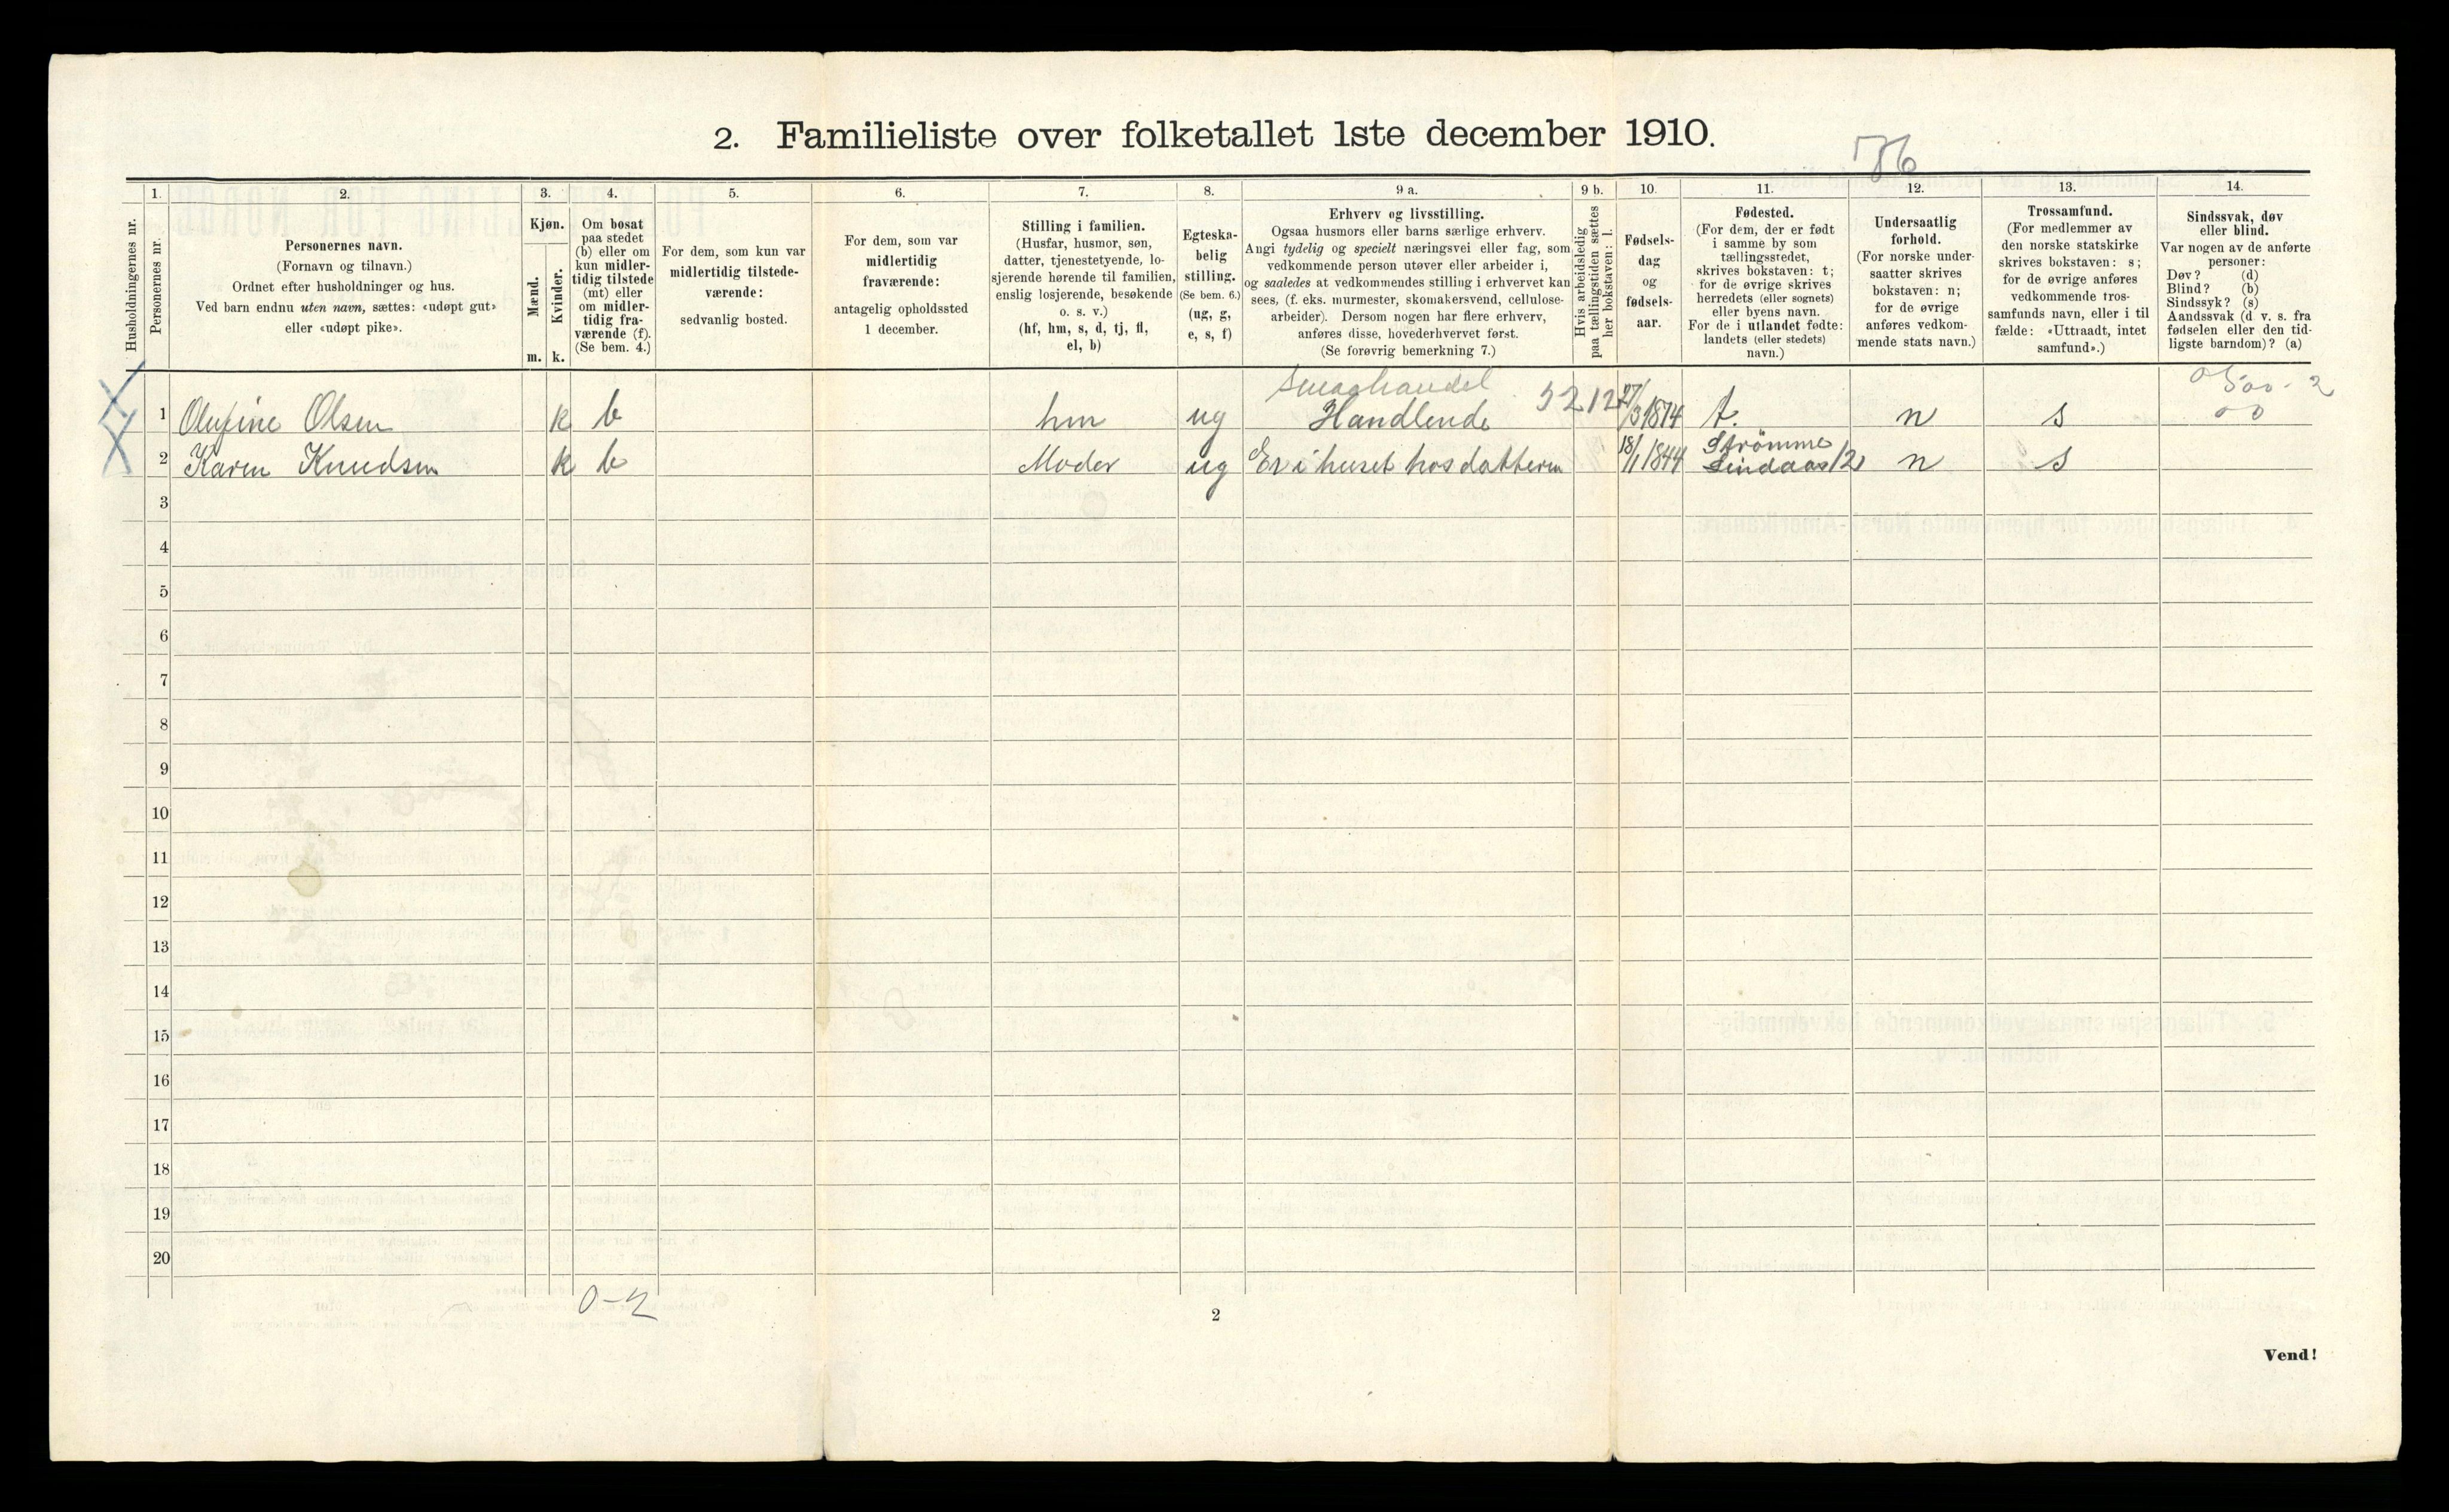 2. Familieliste over folketallet 1ste december 1910.
Husholdningernes nr.
1.
Personernes nr.
2.
Personernes navn.
(Fornavn og tilnavn.)
Ordnet efter husholdninger og hus.
Ved barn endnu uten navn, sættes: «udøpt gut»
eller «udøpt pike».
3.
Kjøn.
Mænd.
m.
Kvinder.
k.
4.
Om bosat
paa stedet
(b) eller om
kun midler-
tidig tilstede
(mt) eller
om midler-
tidig fra-
værende (f).
(Se bem. 4.)
5.
For dem, som kun var
midlertidig tilstede-
værende:
sedvanlig bosted.
6.
For dem, som var
midlertidig
fraværende:
antagelig opholdssted
1 december.
7.
Stilling i familien.
(Husfar, husmor, søn,
datter, tjenestetyende, lo-
sjerende hørende til familien,
enslig losjerende, besøkende
o. s. v.)
(hf, hm, s, d, tj, fl,
el, b)
8.
Egteska-
belig
stilling.
(Se bem. 6.)
(ug, g,
e, s, f)
9 a.
Erhverv og livsstilling.
Ogsaa husmors eller barns særlige erhverv.
Angi tydelig og specielt næringsvei eller fag, som
vedkommende person utøver eller arbeider i,
og saaledes at vedkommendes stilling i erhvervet kan
sees, (f. eks. murmester, skomakersvend, cellulose-
arbeider). Dersom nogen har flere erhverv,
anføres disse, hovederhvervet først.
(Se forøvrig bemerkning 7.)
9 b.
Hvis arbeidsledig
paa tællingstiden sættes
her bokstaven: l.
10.
Fødsels-
dag
og
fødsels-
aar.
11.
Fødested.
(For dem, der er født
i samme by som
tællingsstedet,
skrives bokstaven: t;
for de øvrige skrives
herredets (eller sognets)
eller byens navn.
For de i utlandet fødte:
landets (eller stedets)
navn.)
12.
Undersaatlig
forhold.
(For norske under-
saatter skrives
bokstaven: n;
for de øvrige
anføres vedkom-
mende stats navn.)
13.
Trossamfund.
(For medlemmer av
den norske statskirke
skrives bokstaven: s;
for de øvrige anføres
vedkommende tros-
samfunds navn, eller i til
fælde: «Uttraadt, intet
samfund».)
14.
Sindssvak, døv
eller blind.
Var nogen av de anførte
personer:
Døv? (d)
Blind? (b)
Sindssyk? (s)
Aandssvak (d. v. s. fra
fødselen eller den tid-
ligste barndom)? (a)
Smaahandel
1 Olufine Olsen k b hm ug Handlende 5212 27/3 1874 t. n s
Strömme
2 Karen Knudsen k b Moder ug Er i huset hos datteren 18/1 1844 Lindaas 12 n s
3
4
5
6
7
8
9
10
11
12
13
14
15
16
17
18
19
20
0-2
2
Vend!